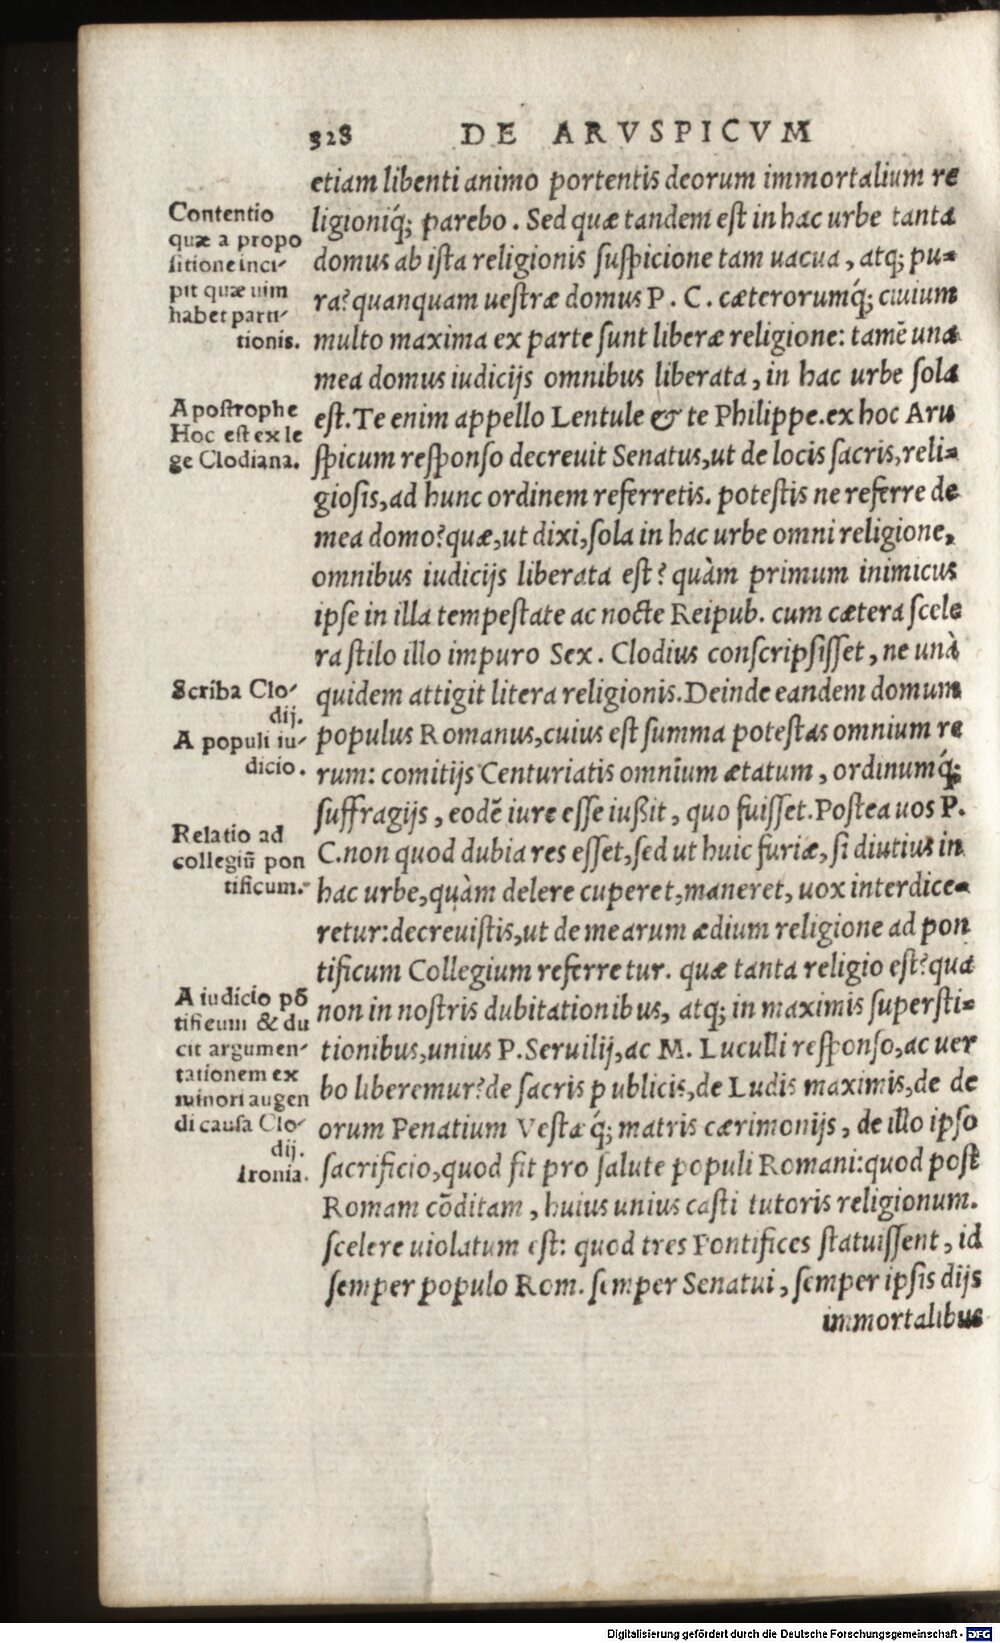 328 DE ARVSPICVM
etiam libenti animo portentis deorum immortalium re
ligioniq́; parebo. Sed quæ tandem est in hac urbe tanta
domus ab ista religionis suspicione tam uacua, atq; pu-
ra? quanquam uestræ domus P. C. cæterorumq́; ciuium
multo maxima ex parte sunt liberæ religione: tamẽ una
mea domus iudicijs omnibus liberata, in hac urbe sola
est. Te enim appello Lentule & te Philippe. ex hoc Aru
spicum responso decreuit Senatus, ut de locis sacris, reli-
giosis, ad hunc ordinem referretis. potestis ne referre de
mea domo? quæ, ut dixi, sola in hac urbe omni religione,
omnibus iudicijs liberata est? quàm primum inimicus
ipse in illa tempestate ac nocte Reipub. cum cætera scele
ra stilo illo impuro Sex. Clodius conscripsisset, ne unà
quidem attigit litera religionis. Deinde eandem domum
populus Romanus, cuius est summa potestas omnium re
rum: comitijs Centuriatis omnium ætatum, ordinumq́;
suffragijs, eodẽ iure esse iußit, quo fuisset. Postea uos P.
C. non quod dubia res esset, sed ut huic furiæ, si diutius in
hac urbe, quàm delere cuperet, maneret, uox interdice-
retur: decreuistis, ut de mearum ædium religione ad pon
tificum Collegium referretur. quæ tanta religio est? qua
non in nostris dubitationibus, atq; in maximis supersti-
tionibus, unius P. Seruilij, ac M. Luculli responso, ac uer
bo liberemur? de sacris publicis, de Ludis maximis, de de
orum Penatium Vestæq́; matris cærimonijs, de illo ipso
sacrificio, quod fit pro salute populi Romani: quod post
Romam cõditam, huius unius casti tutoris religionum.
scelere uiolatum est: quod tres Pontifices statuissent, id
semper populo Rom. semper Senatui, semper ipsis dijs
immortalibus
Contentio
quæ a propo
sitione inci-
pit quæ uim
habet parti-
tionis.
Apostrophe
Hoc est ex le
ge Clodiana.
Scriba Clo-
dij.
A populi iu-
dicio.
Relatio ad
collegiũ pon
tificum.
A iudicio põ
tificum & du
cit argumen-
tationem ex
minori augen
di causa Clo-
dij.
Ironia.
Digitalisierung gefördert durch die Deutsche Forschungsgemeinschaft - DFG